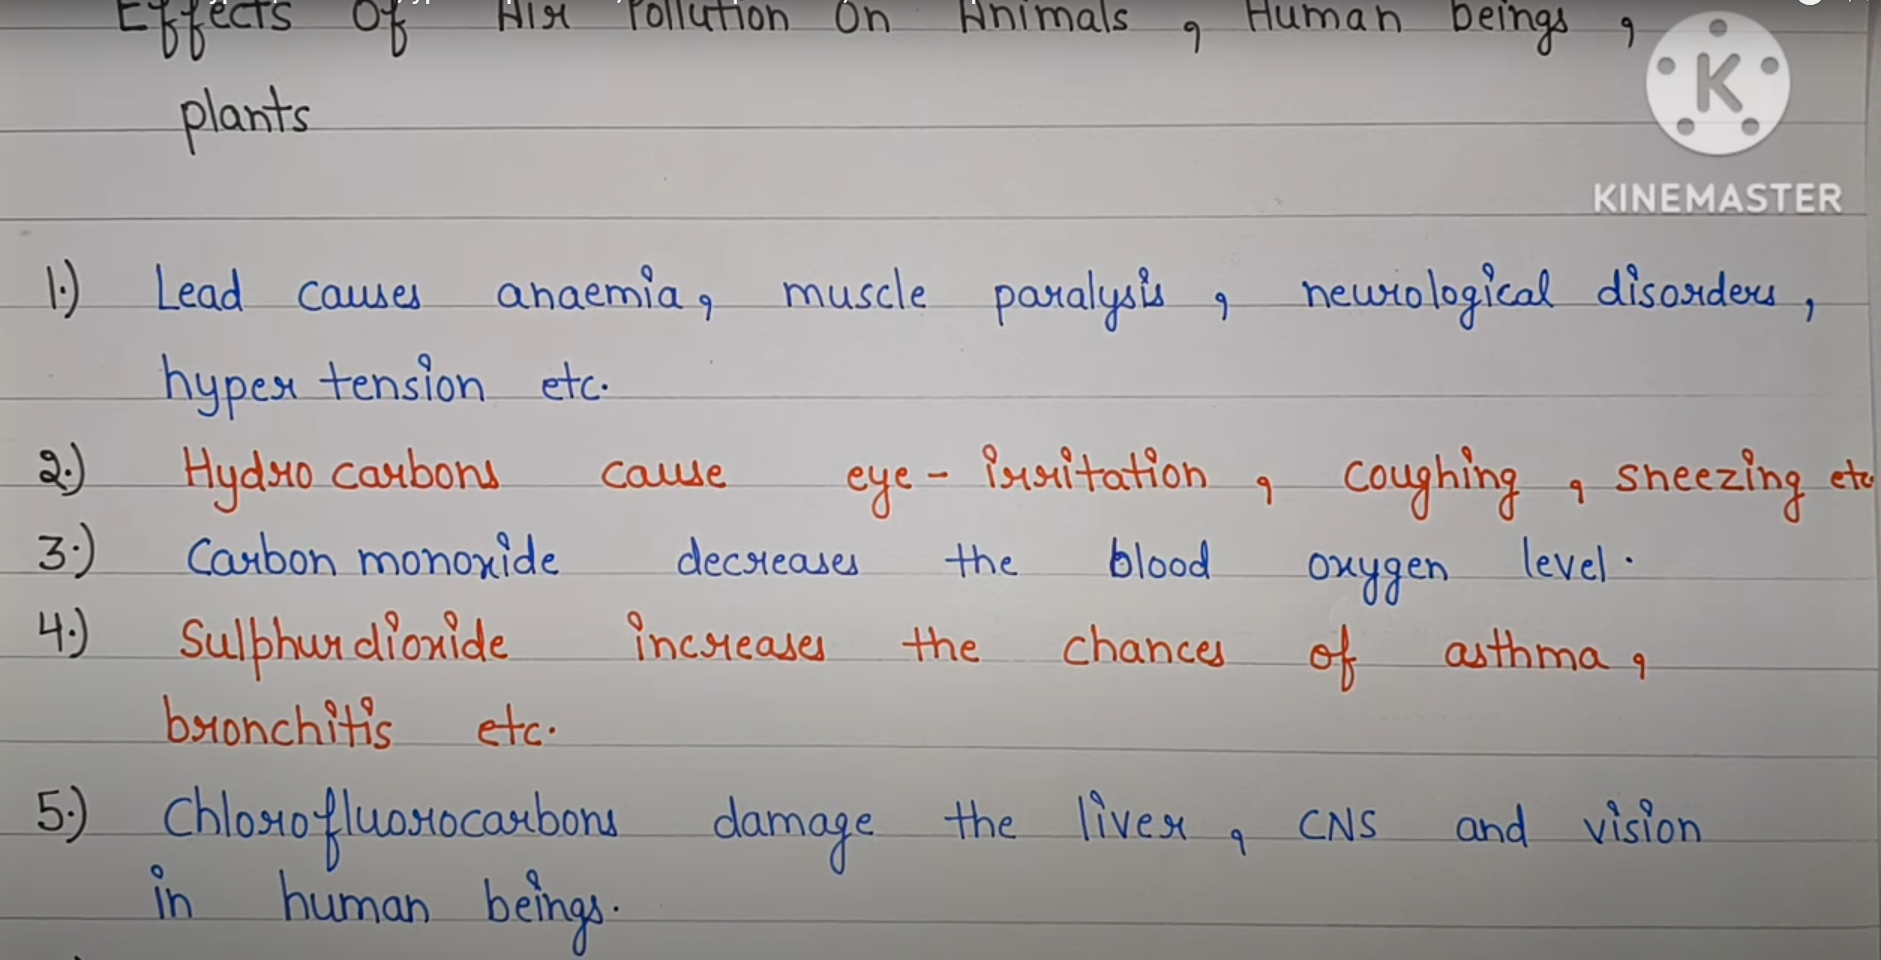 Effects Of Air Pollution On Animals, Human beings,
plants
K
KINEMASTER
1.) Lead causes anaemia, muscle paralysis, neurological disorders,
hyper tension etc.
2.) Hydro carbons cause eye-irritation, coughing, sneezing etc
3.) Carbon monoxide decreases the blood oxygen level.
4.) Sulphur dioxide increases the chances of asthma,
bronchitis etc.
5.) Chlorofluorocarbons damage the liver, CNS and vision
in human beings.